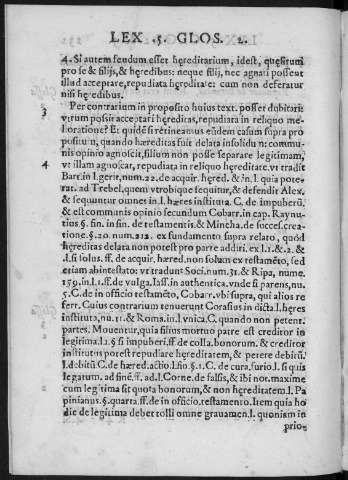 LEX .5. GLOS. 2.
4. Si autem feudum esset hęreditarium, idest, quęsitum
pro se & filijs, & hęredibus: neque filij, nec agnati possent
illud acceptare, repudiata hęreditate: cum non deferatur
nisi hęredibus.
Per contrarium in proposito huius text. posset dubitari:
3
vtrum possit acceptari hęreditas, repudiata in reliquo me
lioratione? Et quidē si retineamus eūdem casum supra pro
positum, quando hęreditas fuit delata insolidū: commu-
nis opinio agnoscit, filium non posse separare legitimam,
4
vt illam agnoscat, repudiata in reliquo hęreditate. vt tradit
Bart. in l. gerit, num. 22. de acquir. hęred. & in l. quia pote-
rat. ad Trebel. quem vtrobique sequitur, & defendit Alex.
& sequuntur omnes in l. hæres instituta. C. de impuberū,
& est communis opinio secundum Cobarr. in cap. Raynu-
tius §. fin. in fin. de testamentis. & Mincha. de succes. crea-
tione. §. 20. num. 212. ex fundamento supra relato, quòd
hęreditas delata non potest pro parte addiri. ex l. 1. & 2. &
l. si solus. ff. de acquir. hæred. non solum ex testamēto, sed
etiam ab intestato: vt tradunt Soci. num. 31. & Ripa, nume.
159. in l. 1. ff. de vulga. Iass. in authentica. vnde si parens, nu.
5. C. de in officio testamēto, Cobar. vbi supra, qui alios re
fert. Cuius contrarium tenuerunt Corasius in dicta l. hęres
instituta, nu. 11. & Roma. in l. vnica C. quando non petent.
partes. Mouentur, quia filius mortuo patre est creditor in
legitima. l. 2. §. si impuberi. ff. de colla. bonorum. & creditor
institutus potest repudiare hęreditatem, & petere debitū.
l. debitū C. de hæred. actio. l. fin. §. 1. C. de cura. furio. l. si quis
legatum. ad fine. ff. ad l. Corne. de falsis, & ibi not. maxime
cum legitima sit quota bonorum, & non hęreditatem. l. Pa
pinianus. §. quarta. ff. de in officio. testamento. Item quia ho
die de legitima debet tolli omne grauamen. l. quoniam in
prio-